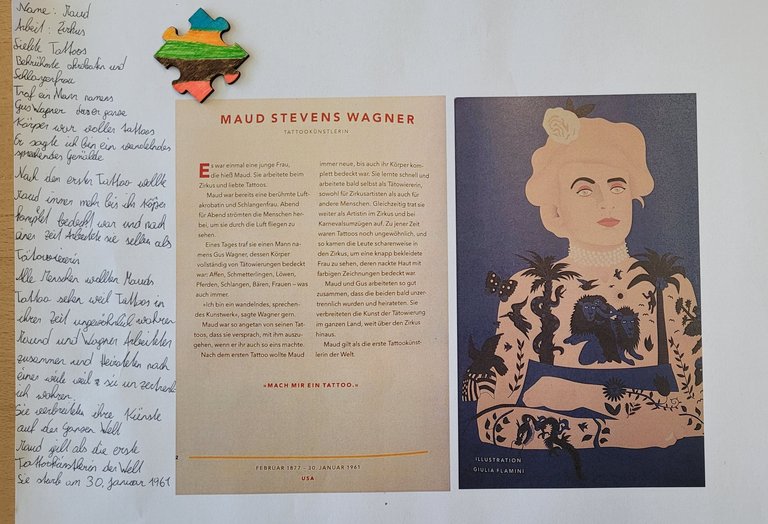 Name: Maud
Arbeit: Zirkus
Liebte Tattoos
Berühmte akrobatin und
Schlangenfrau
Traf ein Mann namens
Gus Wagner desser ganse
Körper war voller tattoos
Er sagte ich bin ein wandelndes
sprechendes Gemälde
Nach den ersten Tattoo wollte
Maud immer mehr bis ihr Körper
komplett bedeckt war und nach
einer zeit Arbeitete sie selber als
Tätowiererin
Alle Menschen wollten Mauds
Tattoo sehen weil Tattoos in
ihrer Zeit ungewöhnlich wahren
Maund und Wagner Arbeiteten
zusammen und Heirateten nach
einer weile weil sie unzertrenl
ich wahren.
Sie verbreitete ihre Künste
auf der Ganzen Welt
Maud gilt als die erste
Tattookünstlerin der Welt
Sie starb am 30. Januar 1961
MAUD STEVENS WAGNER
TATTOOKÜNSTLERIN
Es war einmal eine junge Frau,
die hieß Maud. Sie arbeitete beim
Zirkus und liebte Tattoos.
Maud war bereits eine berühmte Luft-
akrobatin und Schlangenfrau. Abend
für Abend strömten die Menschen her-
bei, um sie durch die Luft fliegen zu
sehen.
Eines Tages traf sie einen Mann na-
mens Gus Wagner, dessen Körper
vollständig von Tätowierungen bedeckt
war: Affen, Schmetterlingen, Löwen,
Pferden, Schlangen, Bären, Frauen – was
auch immer.
»Ich bin ein wandelndes, sprechen-
des Kunstwerk«, sagte Wagner gern.
Maud war so angetan von seinen Tat-
toos, dass sie versprach, mit ihm auszu-
gehen, wenn er ihr auch so eins machte.
Nach dem ersten Tattoo wollte Maud
immer neue, bis auch ihr Körper kom-
plett bedeckt war. Sie lernte schnell und
arbeitete bald selbst als Tätowiererin,
sowohl für Zirkusartisten als auch für
andere Menschen. Gleichzeitig trat sie
weiter als Artistin im Zirkus und bei
Karnevalsumzügen auf. Zu jener Zeit
waren Tattoos noch ungewöhnlich, und
so kamen die Leute scharenweise in
den Zirkus, um eine knapp bekleidete
Frau zu sehen, deren nackte Haut mit
farbigen Zeichnungen bedeckt war.
Maud und Gus arbeiteten so gut
zusammen, dass die beiden bald unzer-
trennlich wurden und heirateten. Sie
verbreiteten die Kunst der Tätowierung
im ganzen Land, weit über den Zirkus
hinaus.
Maud gilt als die erste Tattookünst-
lerin der Welt.
»MACH MIR EIN TATTOO.«
FEBRUAR 1877 – 30. JANUAR 1961
USA
ILLUSTRATION
GIULIA FLAMINI